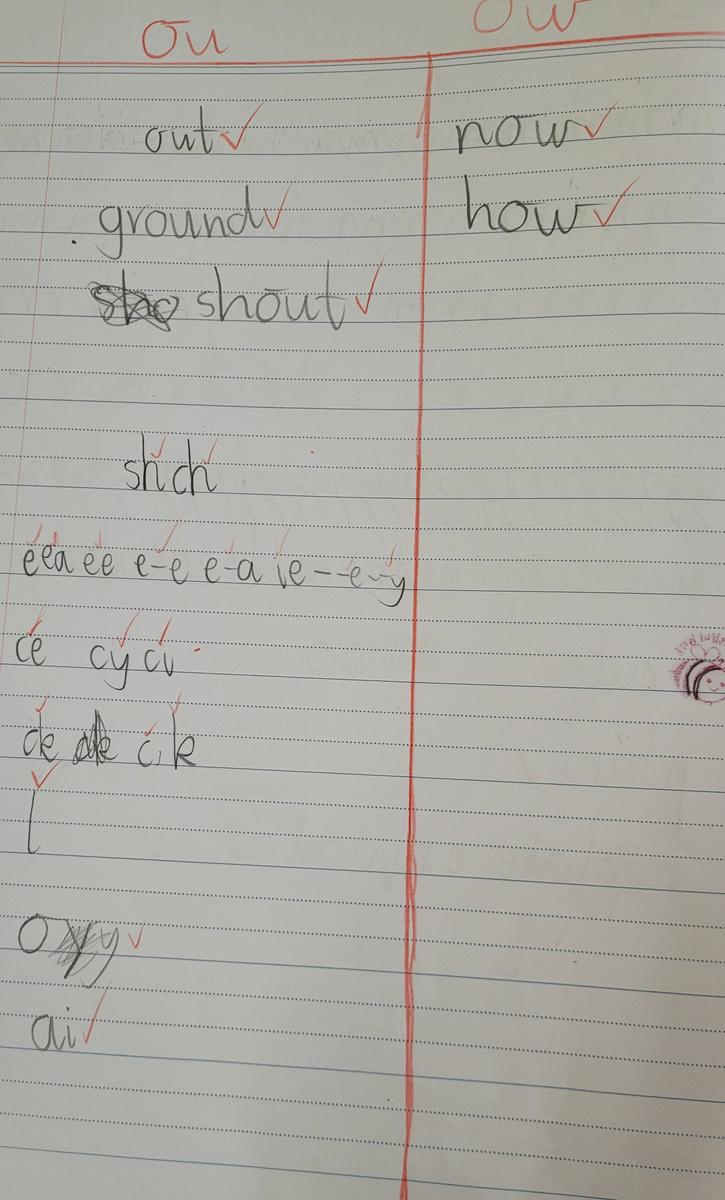 ou ow
out now
ground how
shout
sh ch
e ea ee e-e e-a ie - -e -y
ce cy ci
ck c, k
l
oy
ai